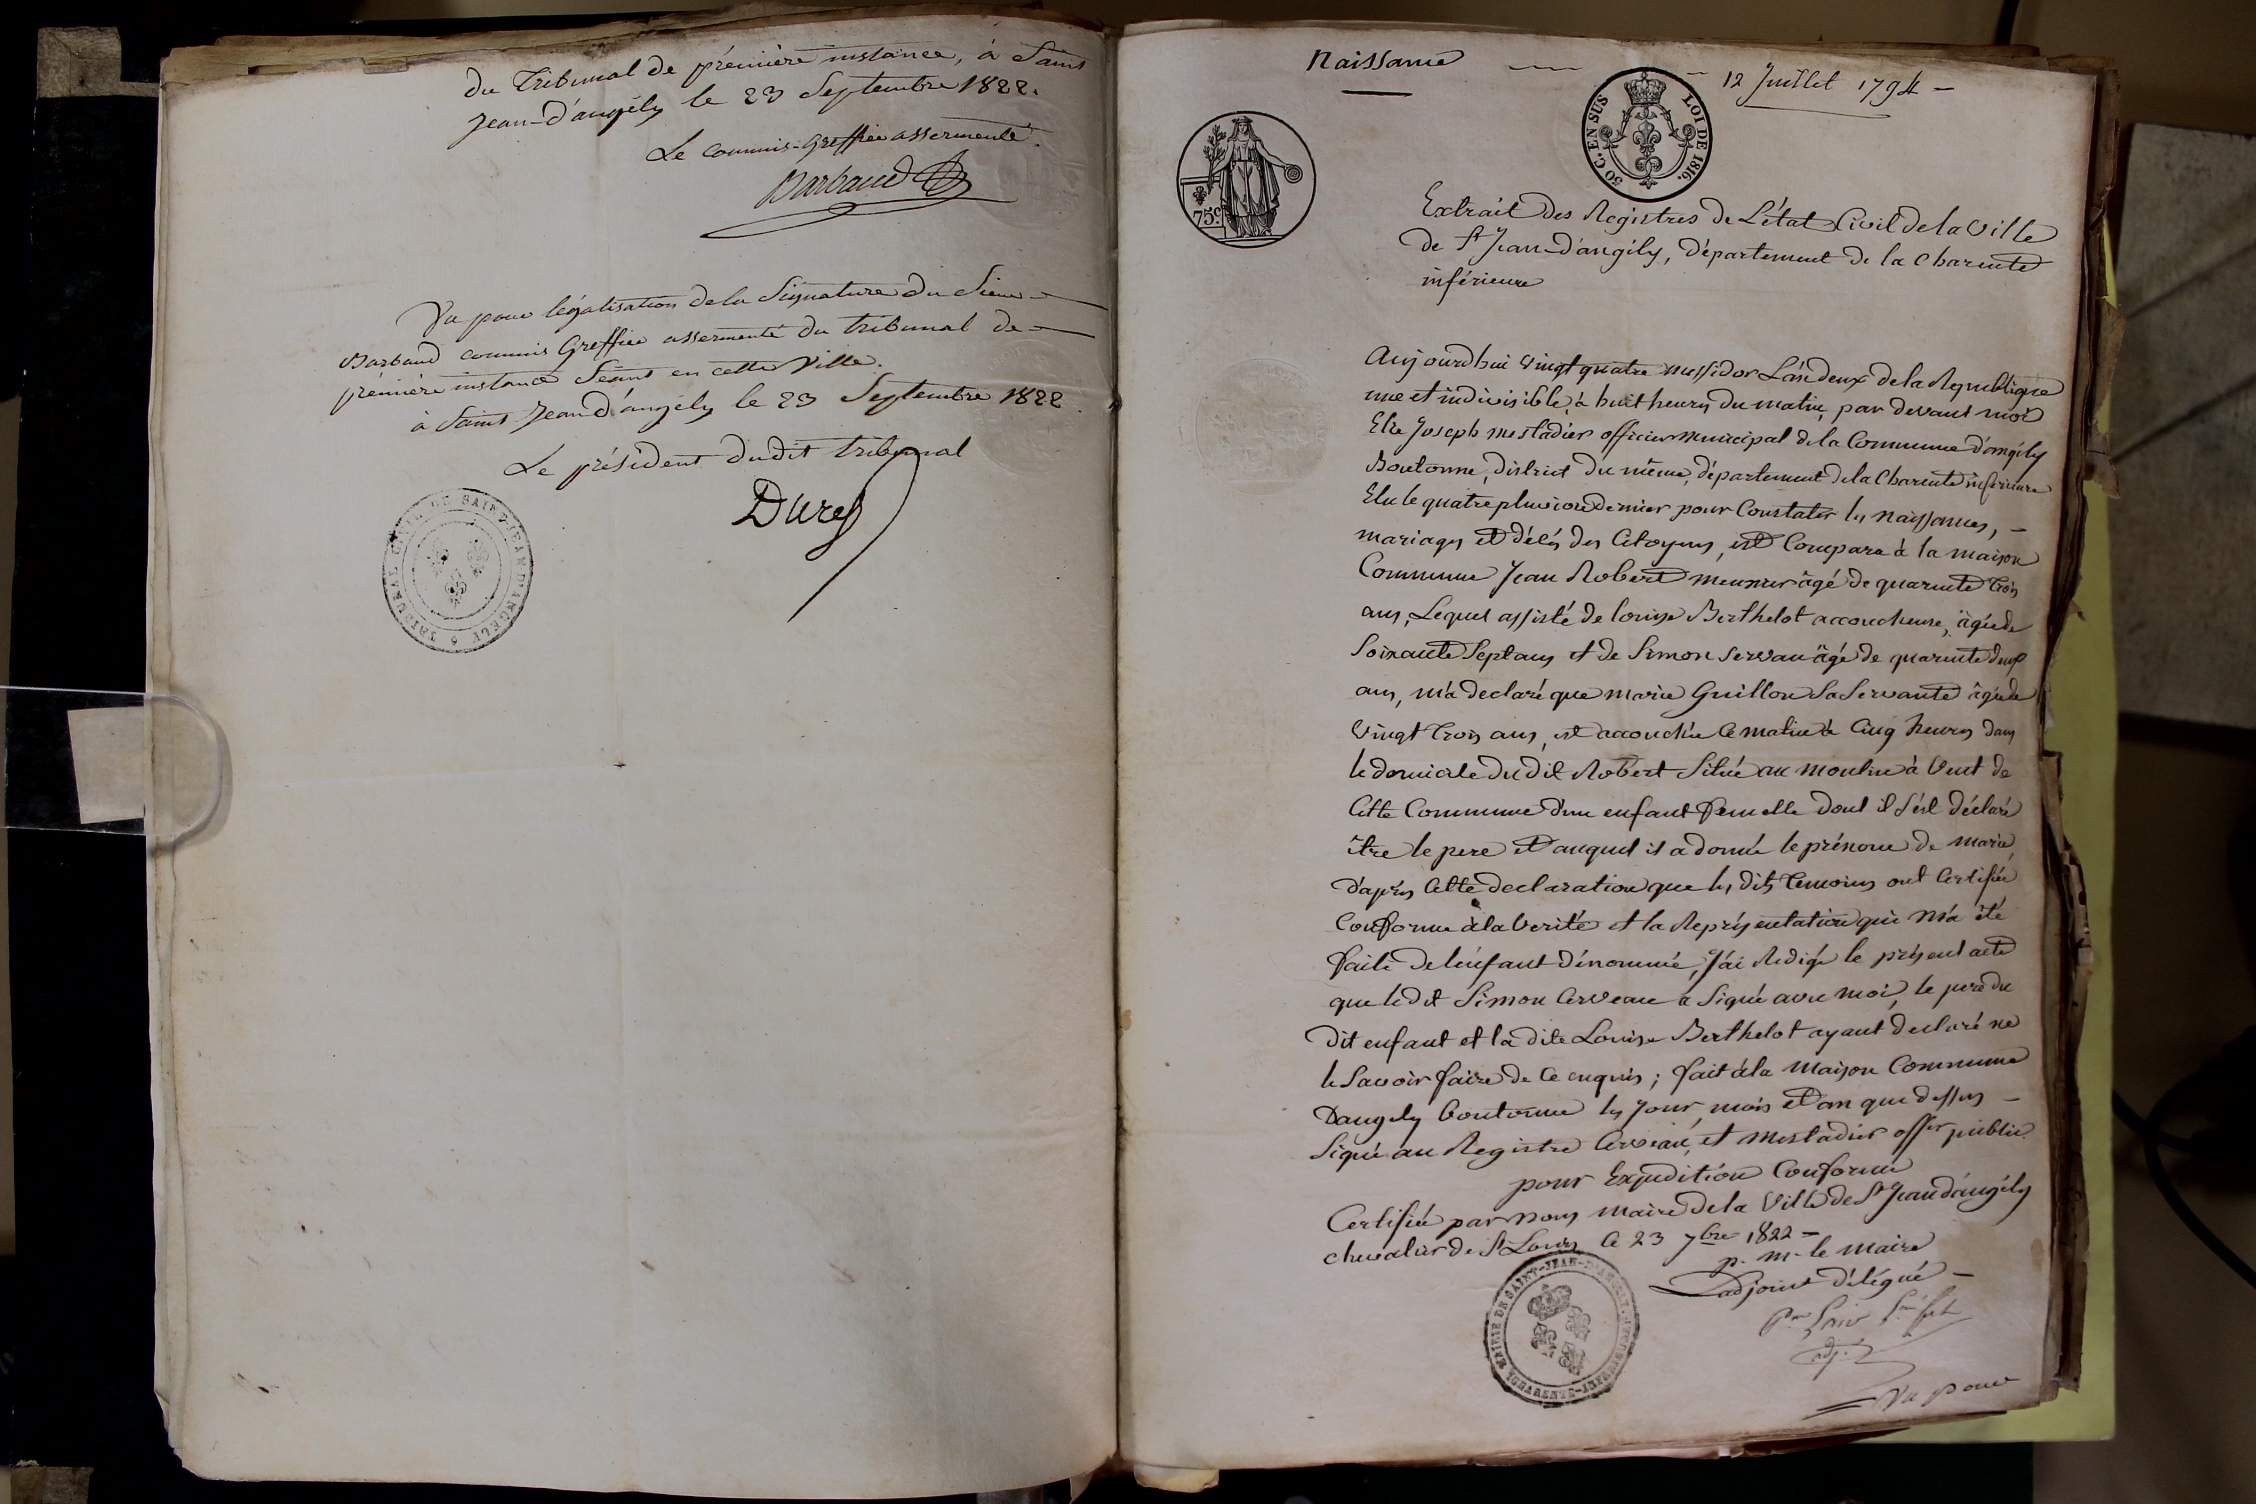 du Tribunal de prémière instance, à Saint
Jean-d'angély le 23 Septembre 1822.
Le commis-Greffier assermenté.
Barbaud
Vu pour légalisation de la Signature du Sieur
Barbaud commis Greffier assermenté du tribunal de
prémière instance Séant en cette Ville.
à Saint Jean d'angély le 23 Septembre 1822.
Le président dudit tribunal
Duret
TRIBUNAL CIVIL DE SAINT-JEAN D'ANGELY
Naissance
12 Juillet 1794
50 C. EN SUS
LOI DE 1816.
75 c.
Extrait des Régistres de L'état Civil de la Ville
de St Jean-d'angély, département de la Charente
inférieure
Aujourdhui vingt quatre messidor L'an deux de la République
une et indivisible, à huit heures du matin, par devant moi
Elie Joseph mestadier officier municipal de la Commune d'angély
Boutonne, district du même, département de la Charente inférieure
Elu le quatre pluviose dernier pour Constater les naissances,
mariages et décés des Citoyens, est Comparu à la maison
Commune Jean Robert meunier âgé de quarente trois
ans, Lequel assisté de louise Berthelot accoucheuse, âgée de
Soixante Sept ans et de Simon Servau âgé de quarente deux
ans, m'a declaré que marie Guillon Sa Servante âgée de
Vingt trois ans, est accouchée Ce matin à Cinq heures dans
le domicile dudit Robert Situé au moulin à Vent de
Cette Commune d'un enfant femelle dont il s'est déclaré
être le pere et auquel il a donné le prénom de marie
d'après Cette declaration que les dits temoins ont Certifiée
Conforme à la Verité et la Représentation qui m'a été
faite de l'enfant dénommée, J'ai Rédigé le présent acte
que le dit Simon Cerveau a Signé avec moi, le pere du
dit enfant et la dite Louise Berthelot ayant declaré ne
le Savoir faire de Ce enquis; fait à la Maison Commune
Dangely boutonne les jour, mois et an que dessus
Signé au Registre Cerveau, et mestadier offer public
pour Expédition Conforme
Certifiée par nous maire de la Ville de St Jean d'angély
chevalier de St Louis Ce 23 7bre 1822
p. m. le maire
L'adjoint délégué
adj.
MAIRIE DE SAINT-JEAN-D'ANGELY
CHARENTE-INFERIEURE
Vu pour